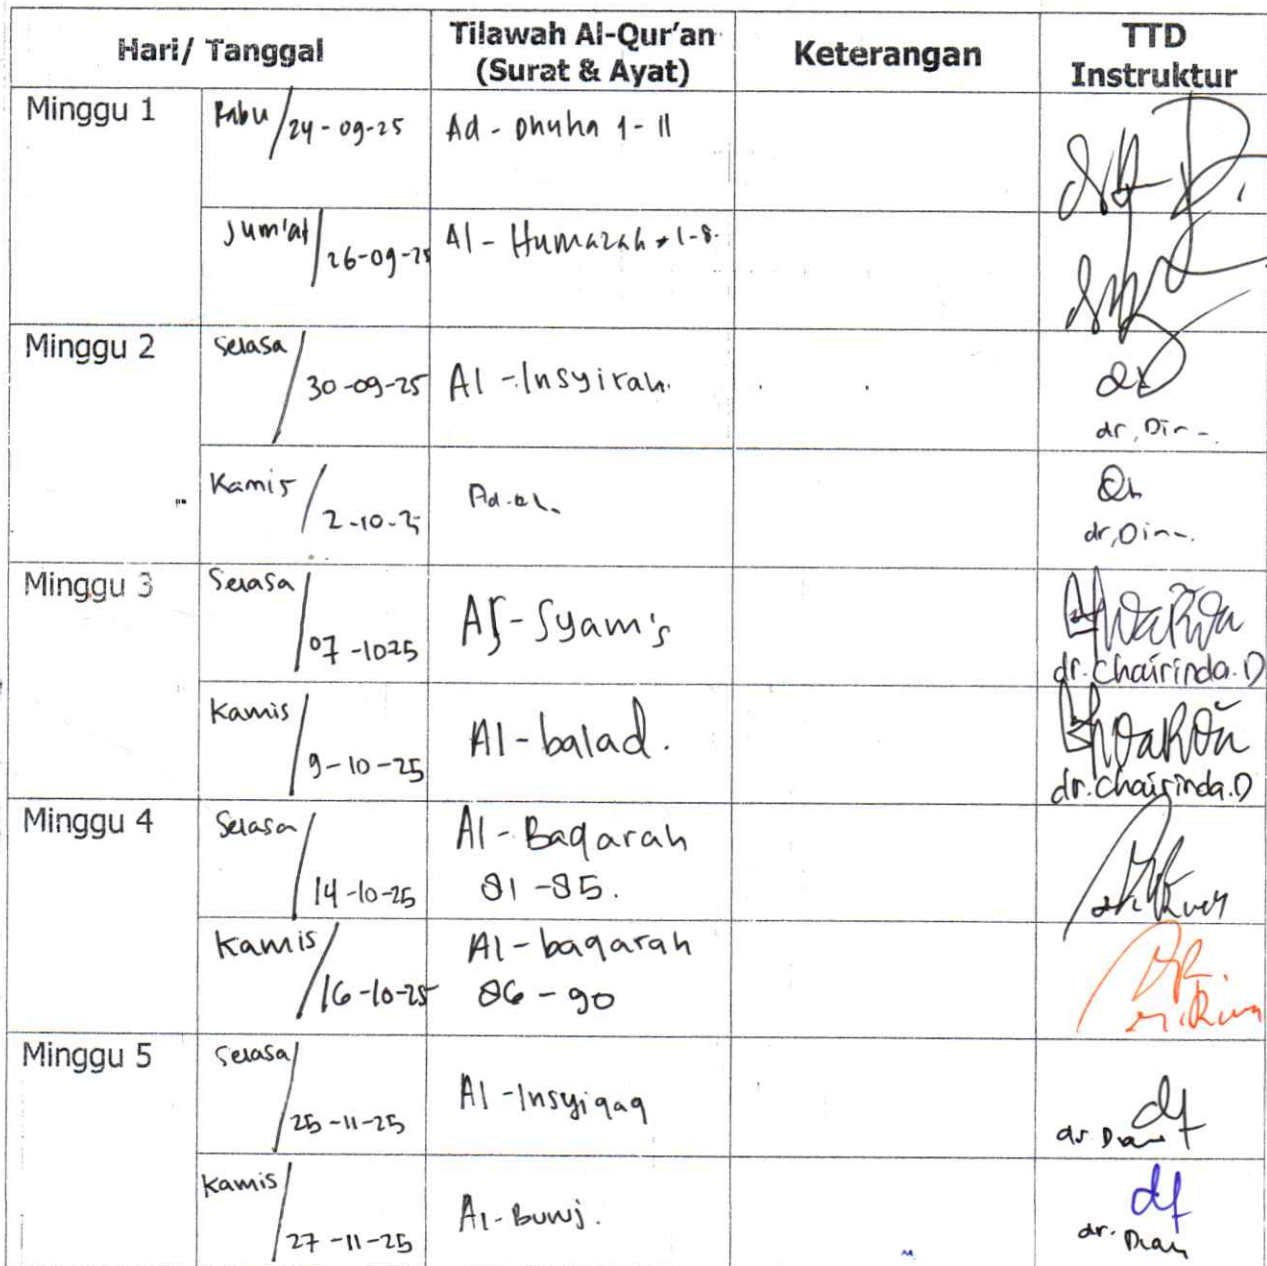 Hari/ Tanggal
Tilawah Al-Qur'an
(Surat & Ayat)
Keterangan
TTD
Instruktur
Minggu 1
Rabu / 24-09-25
Ad-Dhuha 1-11
Jum'at / 26-09-25
Al-Humazah 1-8.
Minggu 2
Selasa / 30-09-25
Al-Insyirah.
dr, Din
Kamis / 2-10-25
dr, Din
Minggu 3
Selasa / 07-1025
As-Syam's
dr. Chairinda.D
Kamis / 9-10-25
Al-balad.
dr. Chairinda.D
Minggu 4
Selasa / 14-10-25
Al-Baqarah
81-85.
Kamis / 16-10-25
Al-baqarah
86-90
Minggu 5
Selasa / 25-11-25
Al-Insyiqaq
dr. Dian
Kamis / 27-11-25
Al-Buruj.
dr. Dian